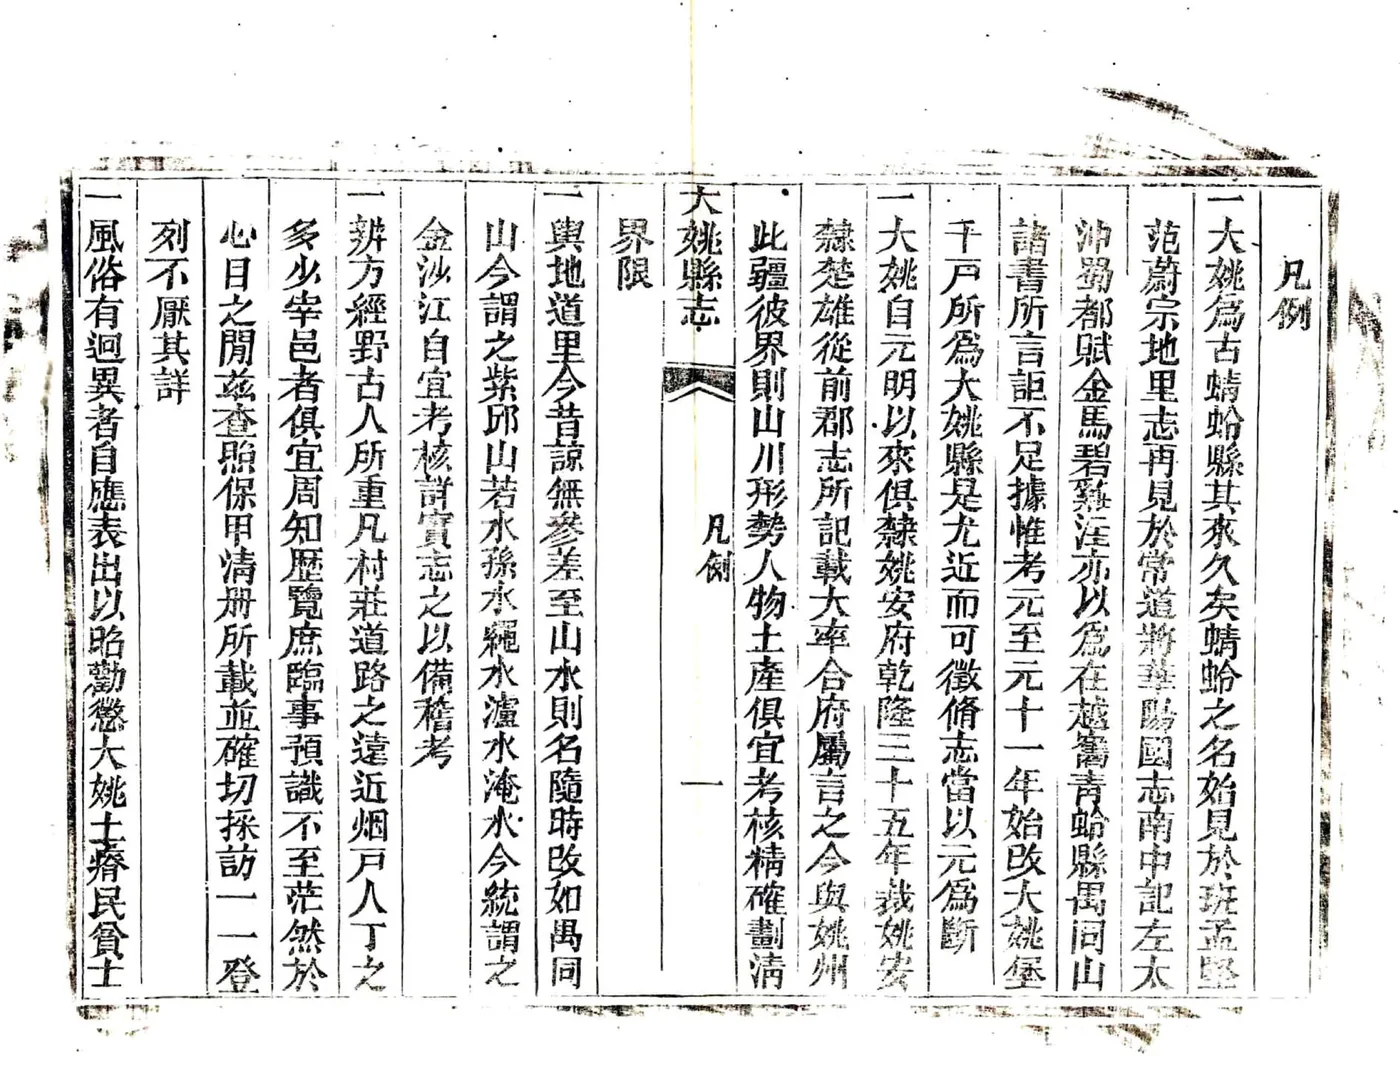 凡例
一大姚爲古蜻蛉縣其來久矣蜻蛉之名始見於班孟堅
范蔚宗地里志再見於常道將華陽國志南中記左太
沖蜀都賦金馬碧雞注亦以爲在越巂青蛉縣禺同山
諸書所言詎不足據惟考元至元十一年始改大姚堡
千戸所爲大姚縣是尤近而可徵脩志當以元爲斷
一大姚自元明以來俱隸姚安府乾隆三十五年裁姚安
隸楚雄從前郡志所記載大率合府屬言之今與姚州
此疆彼界則山川形勢人物土產俱宜考核精確劃清
大姚縣志 凡例 一
界限
一輿地道里今昔諒無參差至山水則名隨時改如禺同
山今謂之紫邱山若水孫水繩水瀘水淹水今統謂之
金沙江自宜考核詳實志之以備稽考
一辨方經野古人所重凡村莊道路之遠近烟戸人丁之
多少宰邑者俱宜周知歷覽庶臨事預識不至茫然於
心目之閒兹查照保甲清册所載並確切採訪一一登
列不厭其詳
一風俗有迥異者自應表出以昭勸懲大姚土瘠民貧士